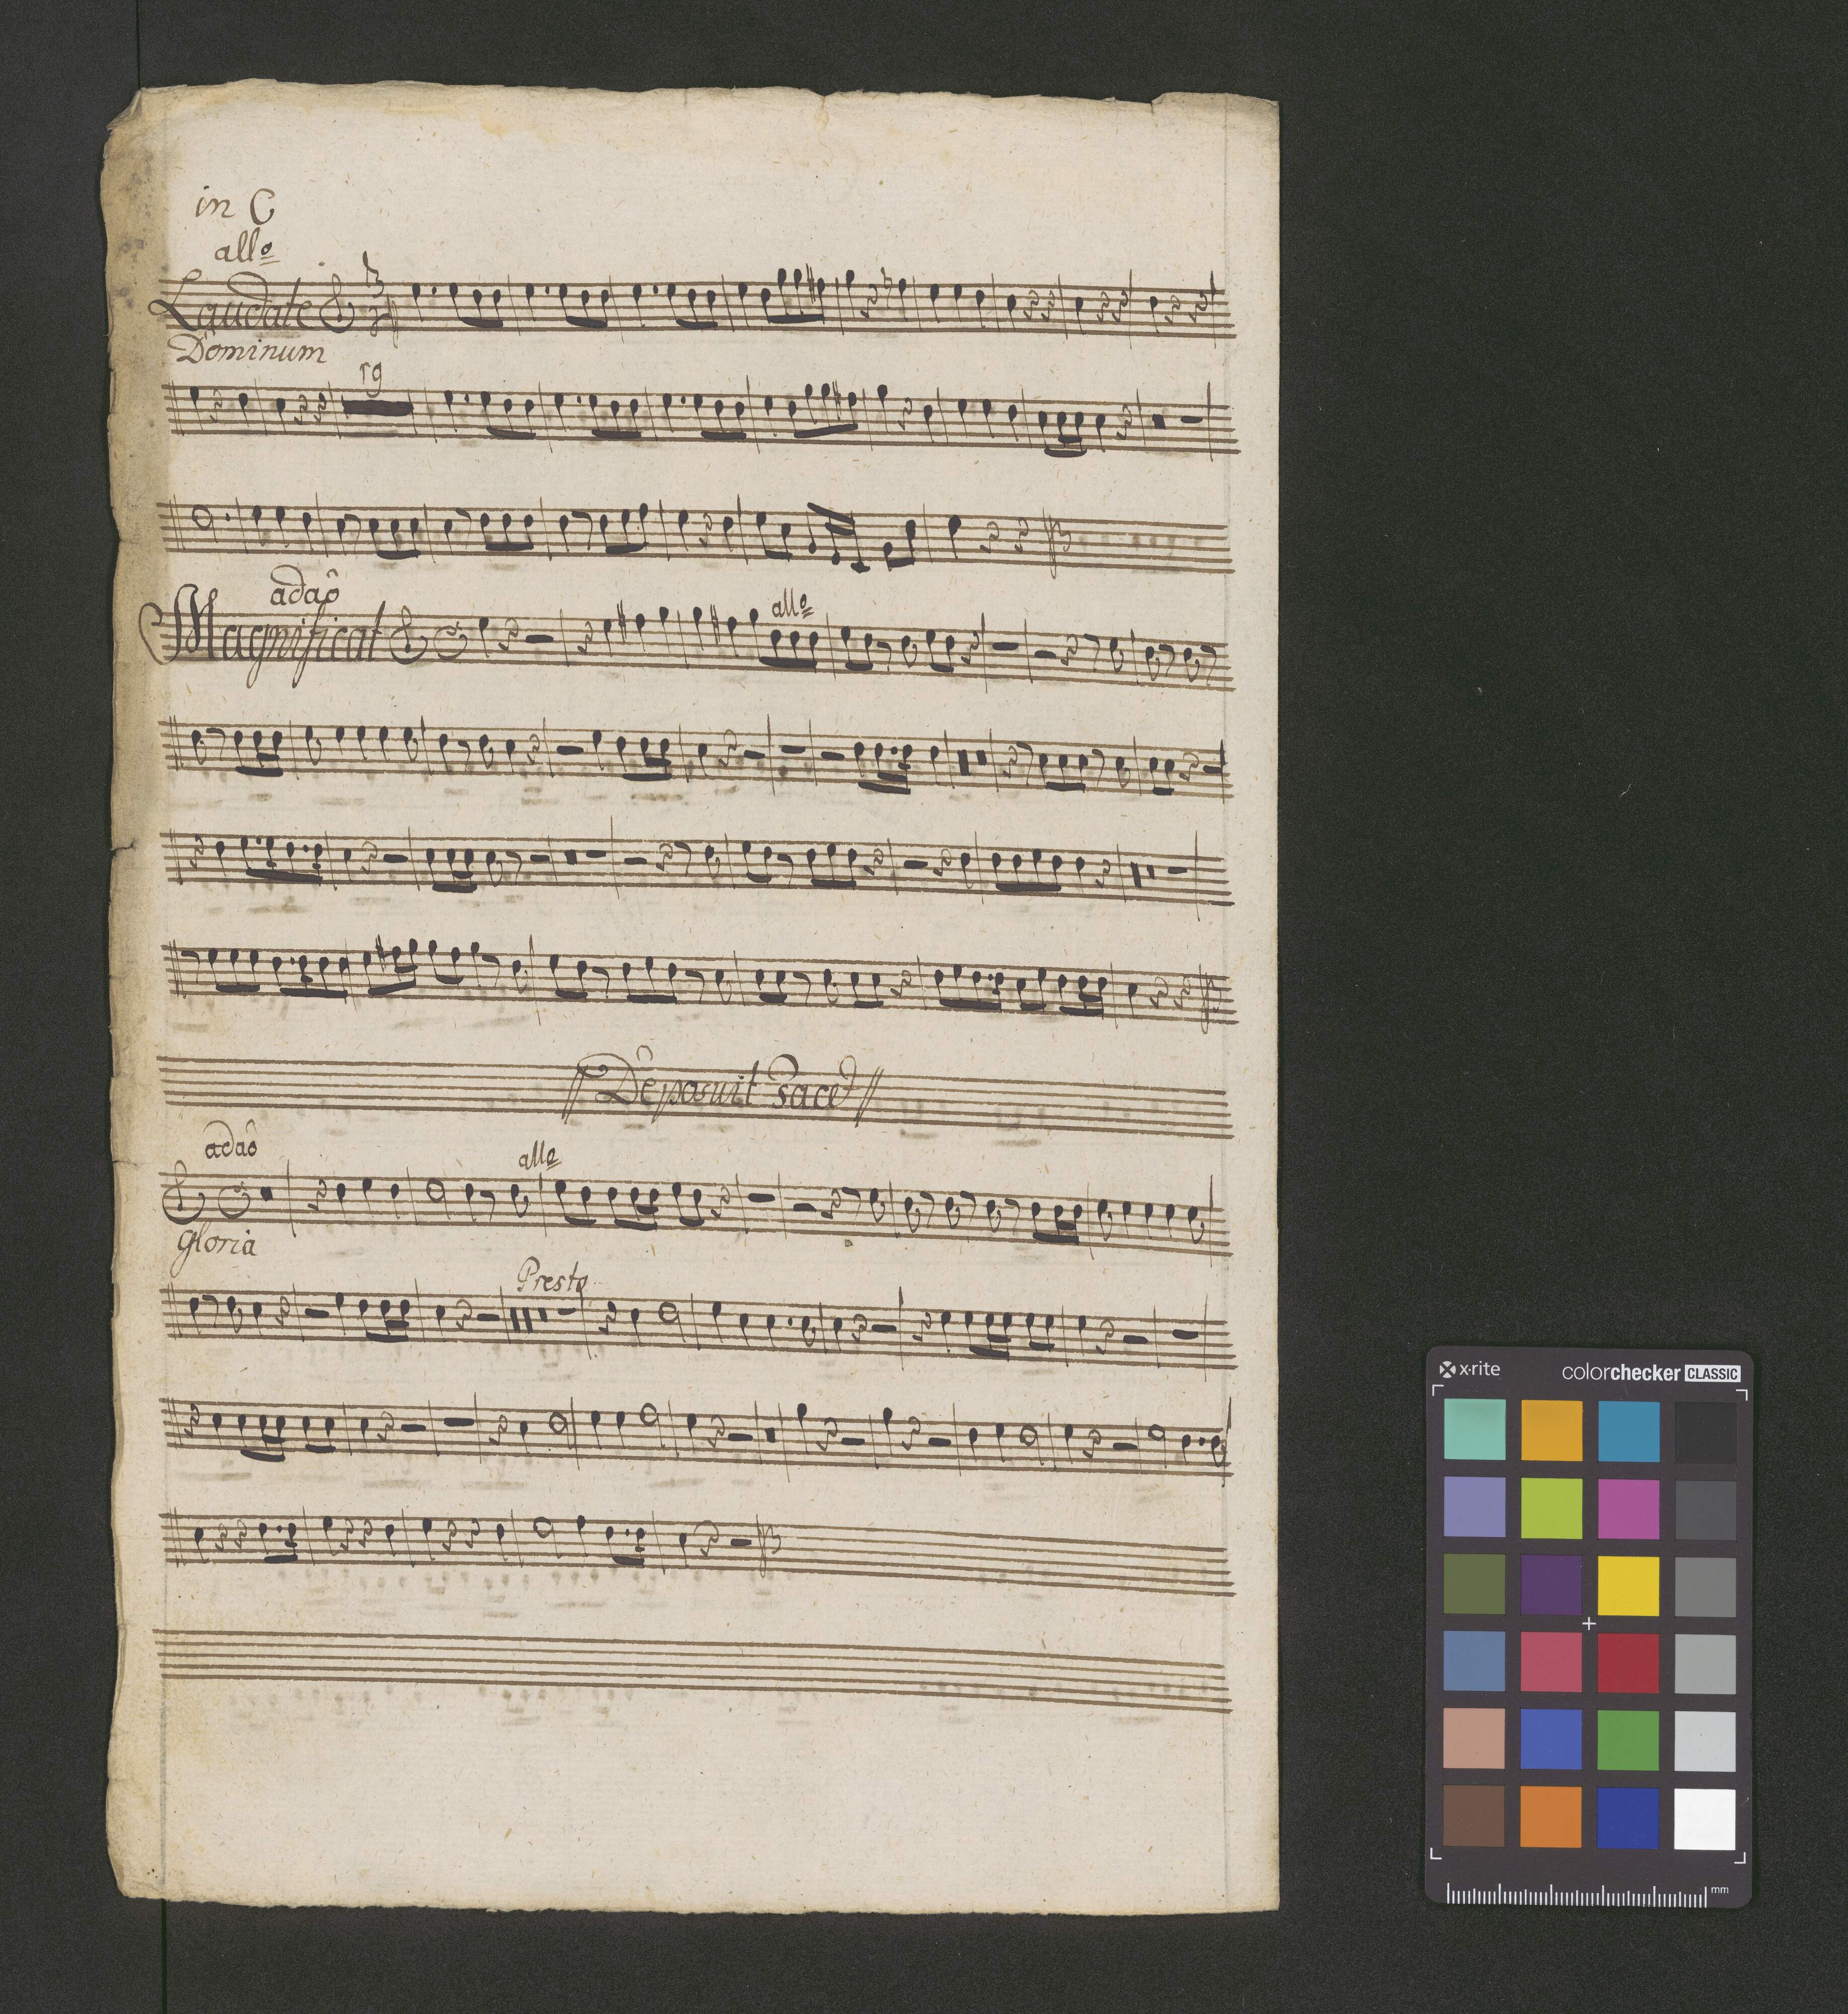 in C
allo
Laudate
Dominum
19
adao
allo
Magnificat
// Deposuit Tacet //
adao
allo
Gloria
Presto
x·rite
colorchecker CLASSIC
mm